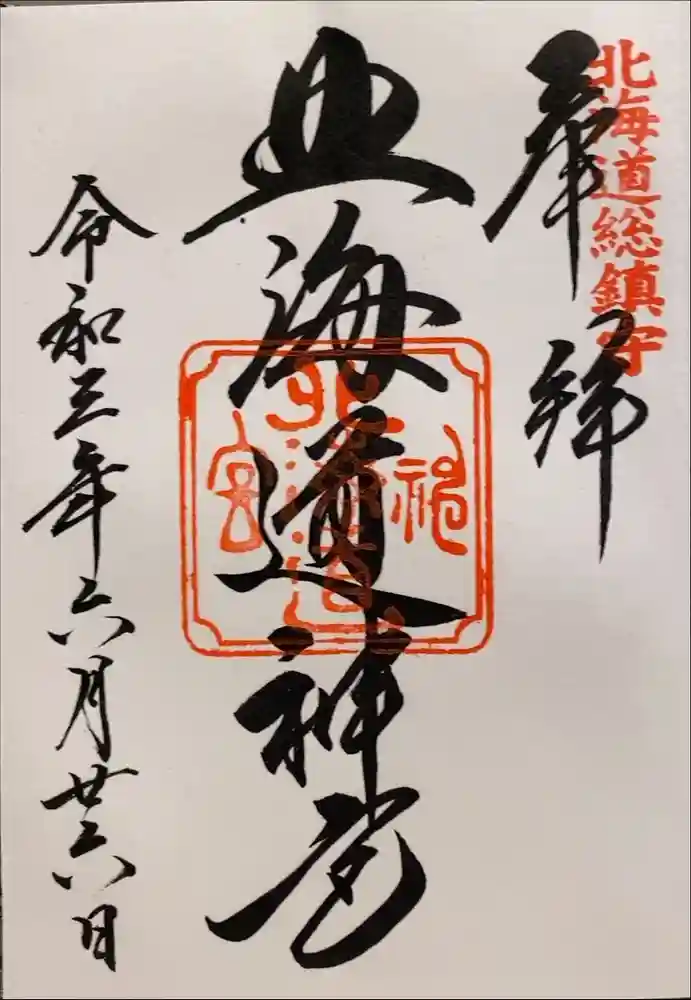 北海道総鎮守
奉拝
北海道神宮
北海道
神
宮
令和三年六月廿六日